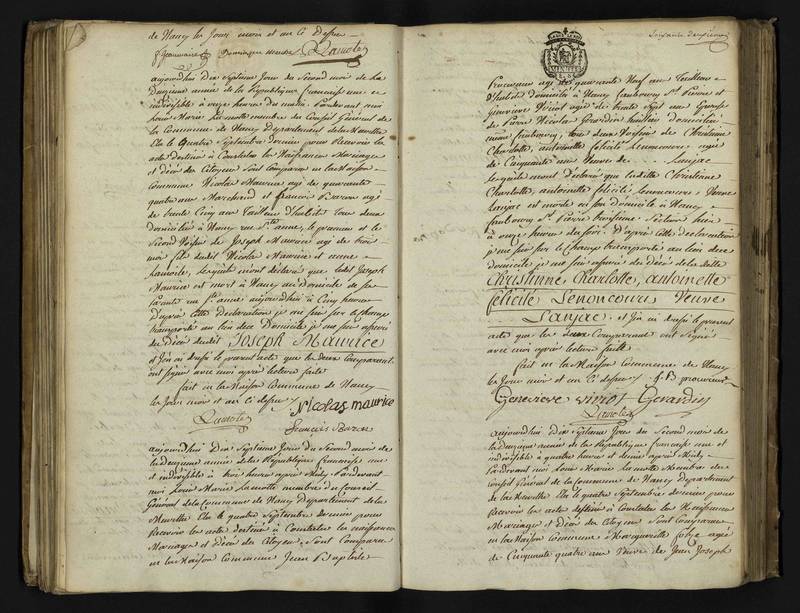 de Nancy les Jour mois et an Ci dessus
Dominique Lamotte
aujourdhui Dix Septieme Jour du Second mois de La
Deuxieme année de la République françoise une et
indivisible à onze heures du matin. Pardevant moi
Louis Marie Lamotte membre du Conseil Général de
la Commune de Nancy Departement de la Meurthe
Elu le quatre Septembre dernier pour Recevoir les
actes destinés à Constater les Naissances Mariages
et décès des Citoyens Sont Comparus en la Maison
Commune Nicolas Maurice agé de quarante
quatre ans Marchand et françois Baron agé
de trente Cinq ans Tailleur d'habits tous deux
domiciliés à Nancy rue Ste anne, le premier et le
Second Voisin de Joseph Maurice agé de trois
mois fils dudit Nicolas Maurice et anne
Lamotte, lesquels m'ont déclaré que ledit Joseph
Maurice est mort à Nancy au domicile de ses
parents rue Ste anne aujourdhui à Cinq heures
D'après cette Déclaration je me suis sur le champ
transporté au lieu dudit Domicile je me suis assuré
du Décès dudit Joseph Maurice
et j'en ai dressé le présent acte que les deux Comparants
ont signé avec moi après lecture faite
fait en la Maison Commune de Nancy
les Jour mois et an Ci dessus Nicolas maurice
Lamotte
françois Baron
aujourdhui Dix Septieme Jour du Second mois de
la deuxieme année de la République françoise une
et indivisible à trois heures après Midy Pardevant
moi Louis Marie Lamotte membre du Conseil
Général de la Commune de Nancy Departement de la
Meurthe Elu le quatre Septembre dernier pour
Recevoir les actes destinés à Constater les naissances
Mariages et Décès des Citoyens, Sont Comparus
en la Maison Commune Jean Baptiste
Soixante deuxieme
Procureur agé de quarante Neuf ans Tailleur
d'habits domicilié à Nancy faubourg St Pierre et
Genevieve Viriot agée de trente Sept ans Epouse
de Pierre Nicolas Gerardin domicilié
même faubourg, tous deux Voisins de Christinne
Charlotte, antoinette felicité Lenoncourt agée
de Cinquante ans Veuve de . . . Lanjac
lesquels m'ont déclaré que ladite Christinne
Charlotte, antoinette felicité Lenoncourt Veuve
Lanjac est morte en son domicile à Nancy
faubourg St Pierre troisieme Section hier
à onze heures du soir. D'après cette déclaration
je me suis sur le Champ transporté au lieu dudit
domicile je me suis assuré du Décès de la ditte
Christinne, Charlotte, antoinette
felicité Lenoncourt Veuve
Lanjac. et j'en ai dressé le présent
acte que les deux Comparants ont signé
avec moi après lecture faite
fait en la Maison Commune de Nancy
les Jour mois et an Ci dessus J. B procureur
Genevieve viriot Gerardin
Lamotte
aujourdhui Dix Septieme Jour du Second mois de
la deuxieme année de la République françoise une et
indivisible à quatre heures et demie après Midy
Pardevant moi Louis Marie Lamotte Membre du
Conseil Général de la Commune de Nancy Departement
de la Meurthe Elu le quatre Septembre dernier pour
Recevoir les actes destinés à Constater les Naissances
Mariages et Décès des Citoyens Sont Comparus
en la Maison Commune Marguerite agée
de Cinquante quatre ans Veuve de Jean Joseph